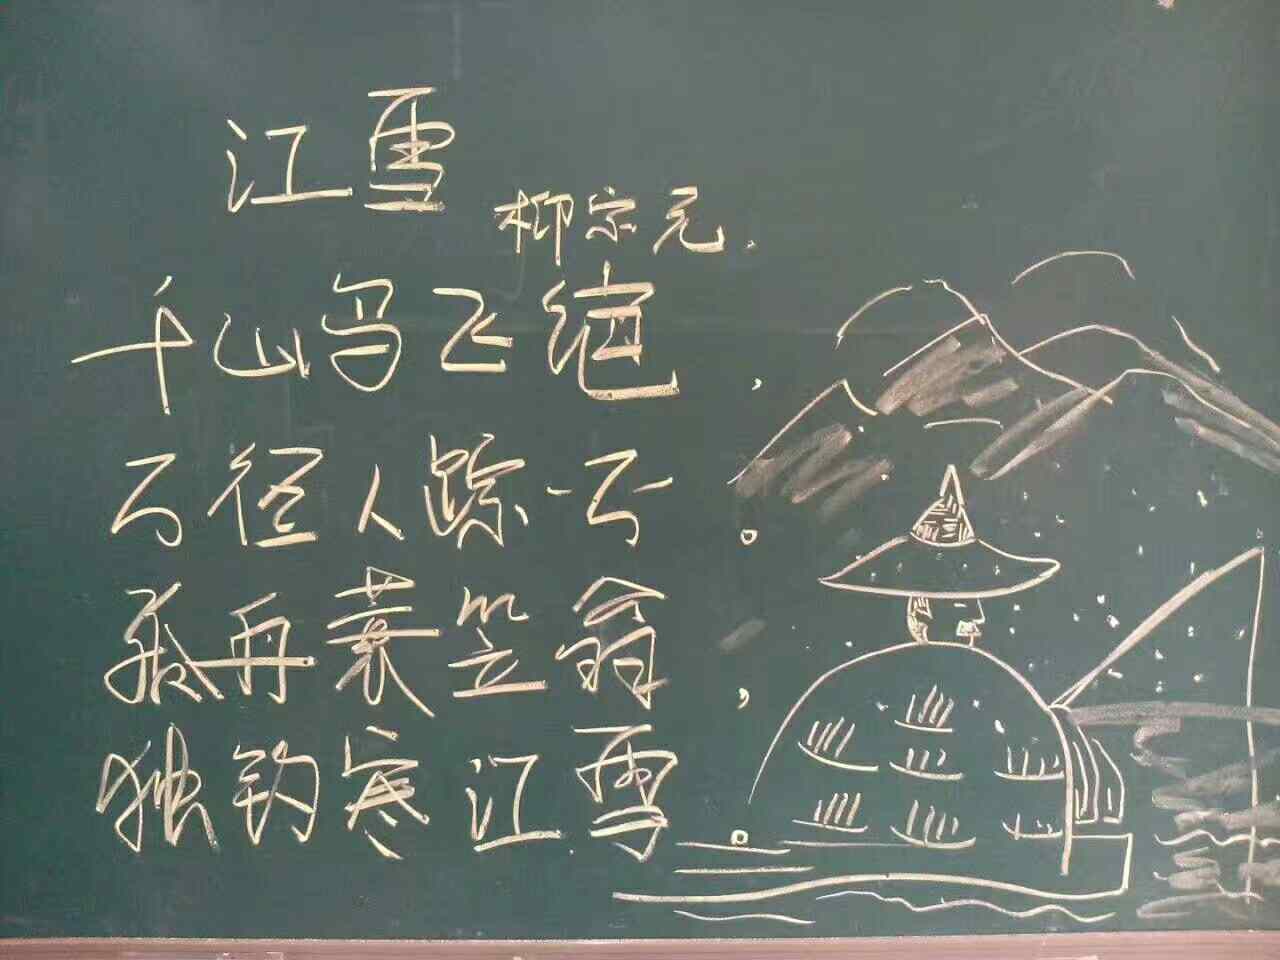 江雪
柳宗元.
千山鸟飞绝，
万径人踪灭。
孤舟蓑笠翁，
独钓寒江雪。